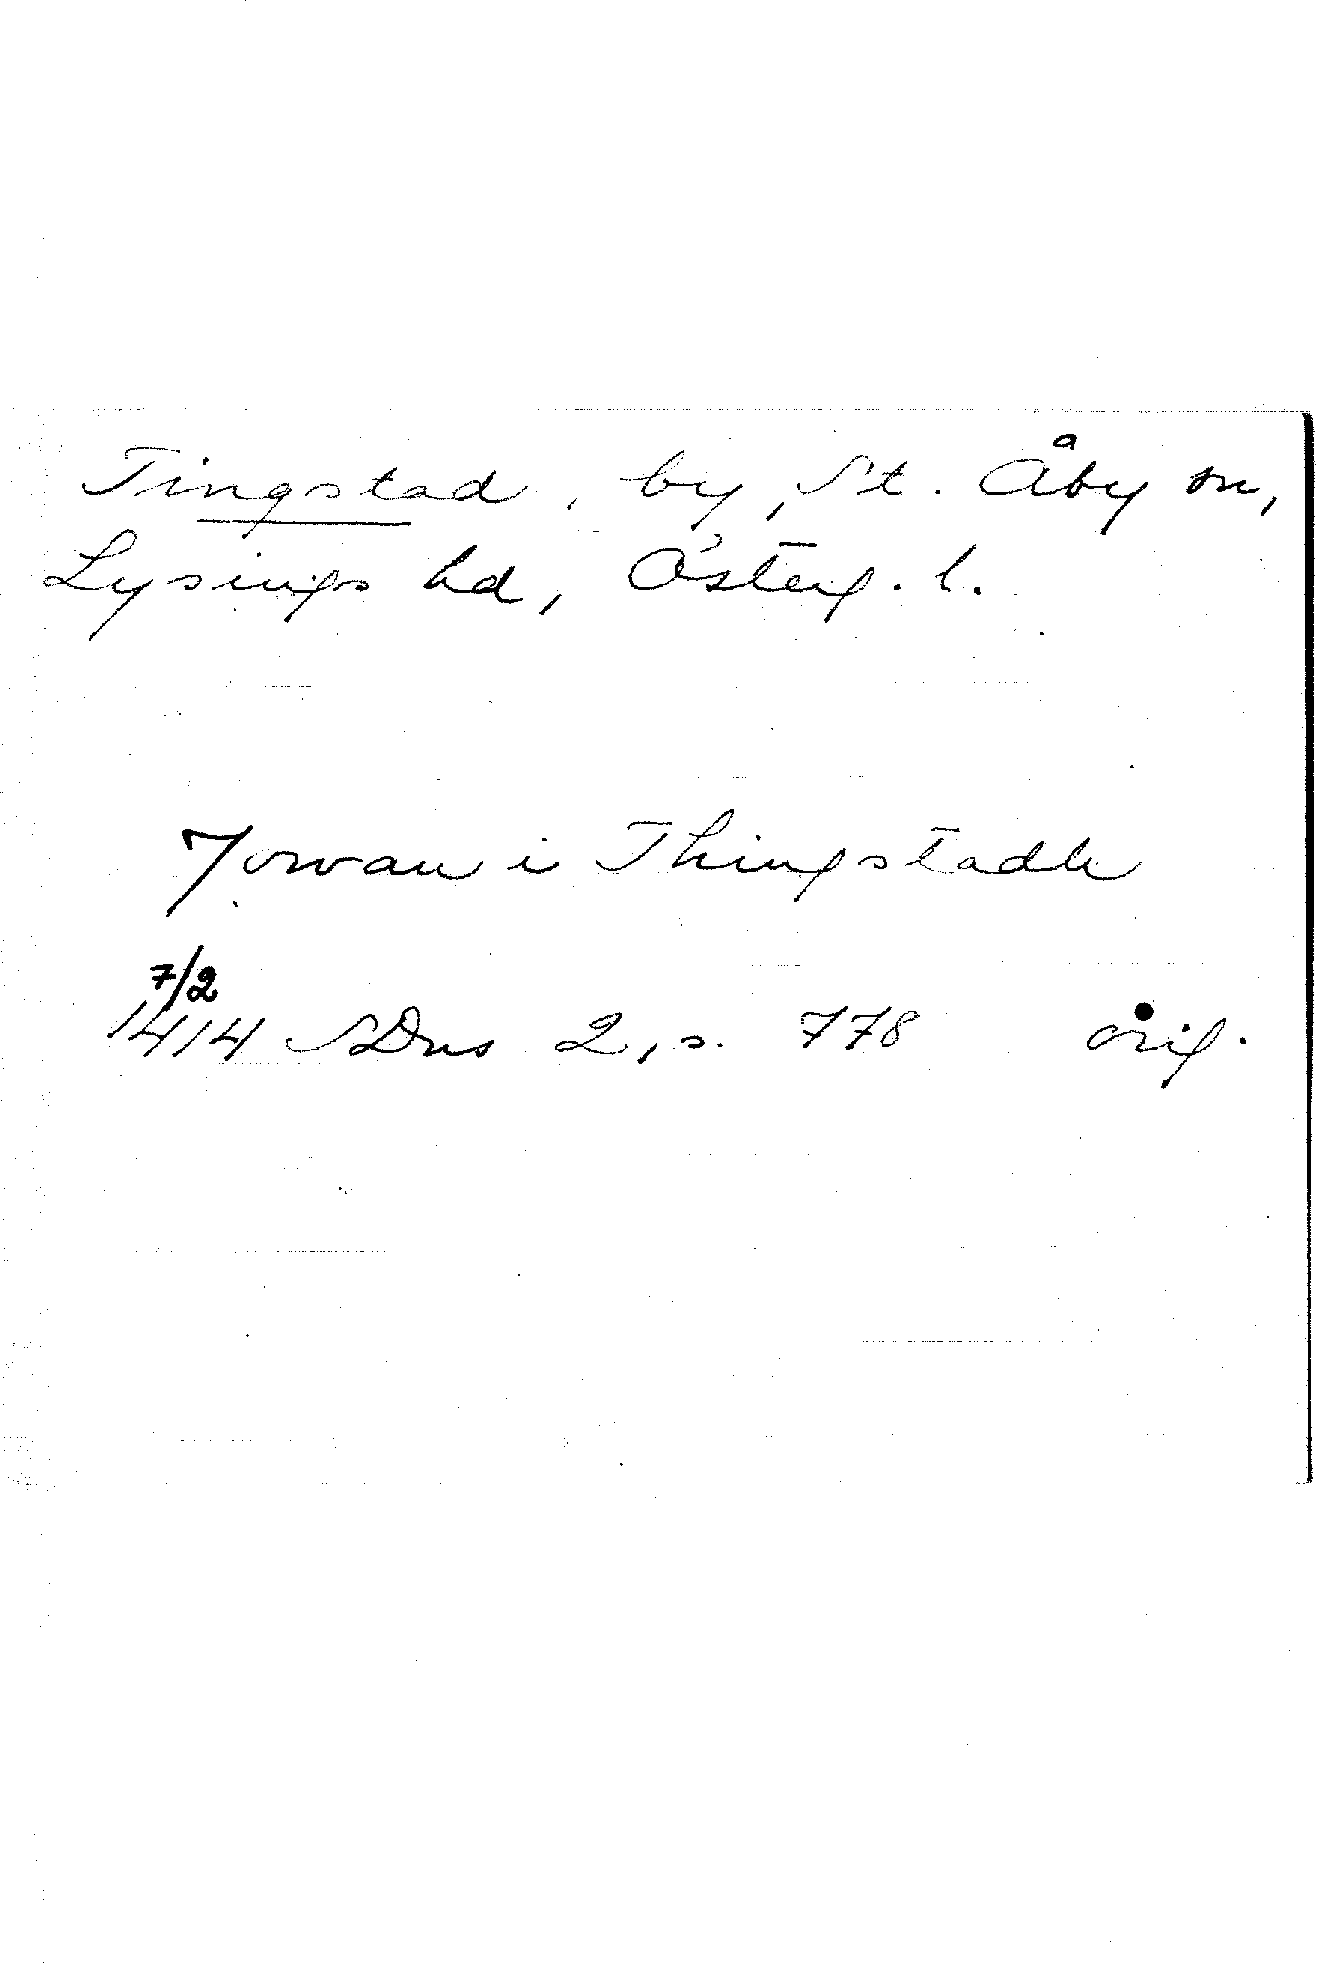 Tingstad, by, St. Åby sn,
Lysings hd, Österg. l.
Jowan i Thingstadh
7/2
1414 SDns 2, s. 778 orig.